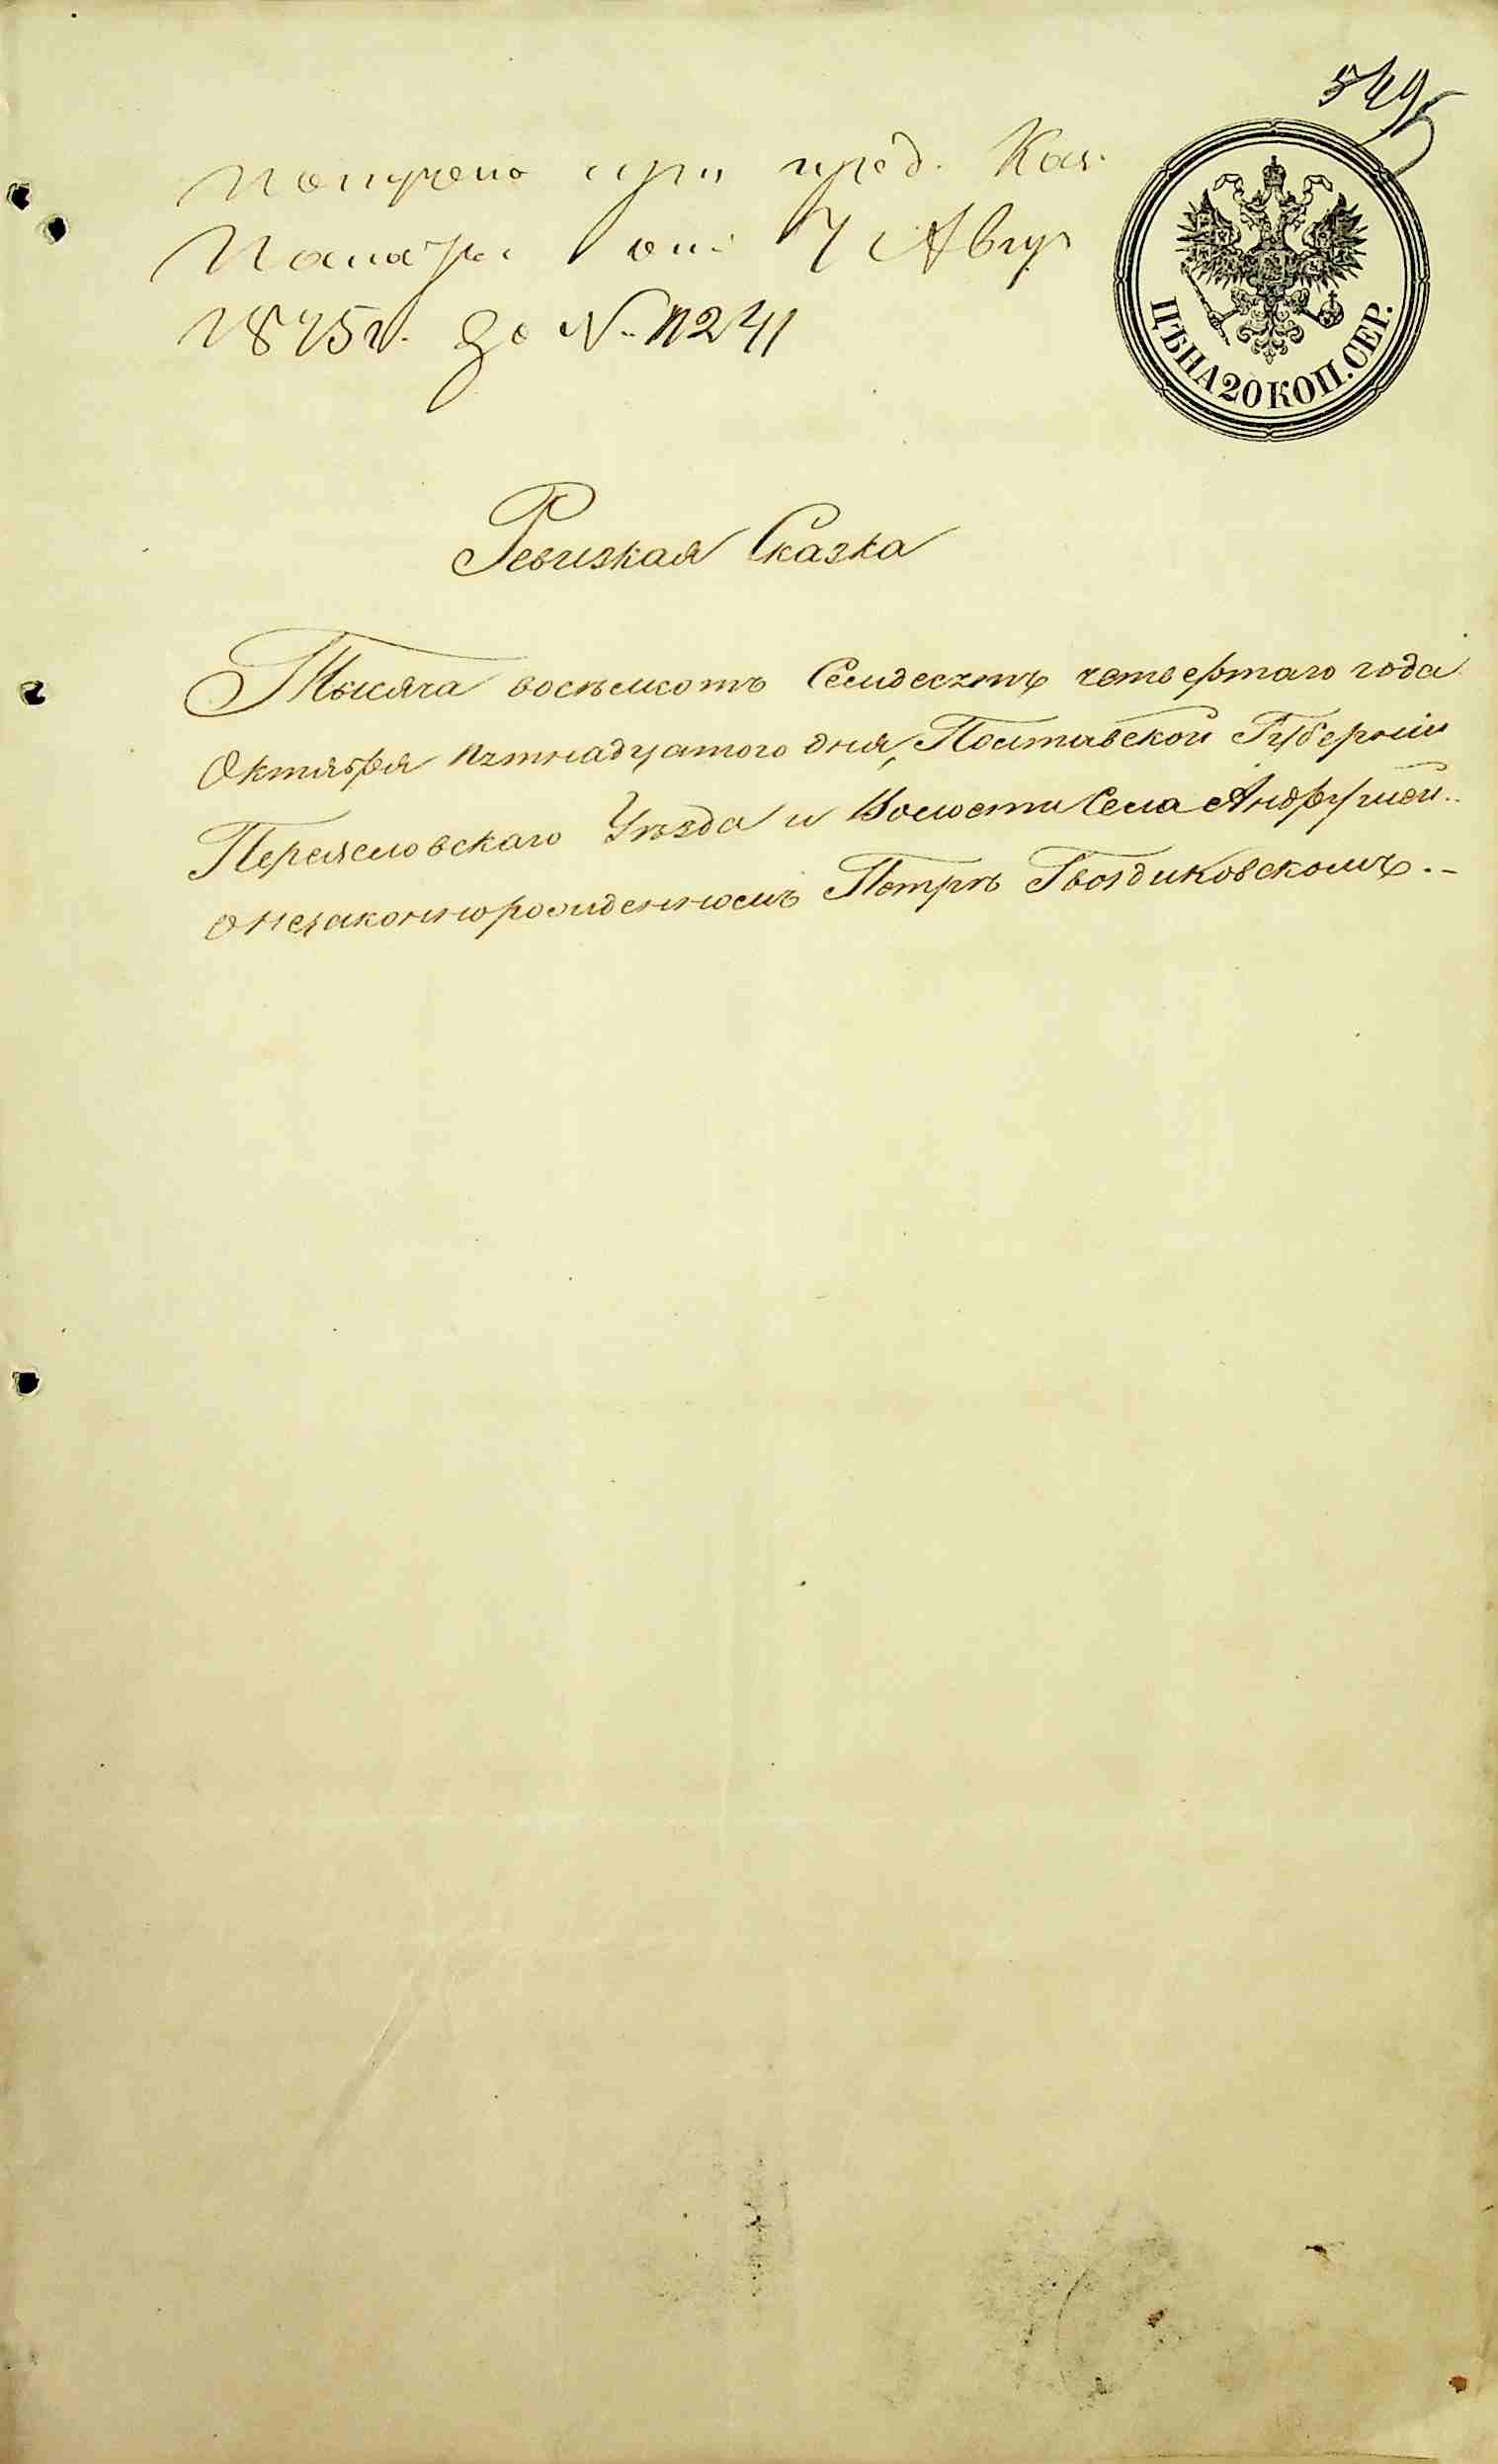 549
Получено при пред. Каз.
Палаты от 7 Авгус
1875 г. за № 11241
ЦѢНА 20 КОП. СЕР.
Ревизкая Сказка
Тысяча восѣмсотъ Семдесятъ четвертаго года
Октября пятнадцатого дня, Полтавской Губерніи
Переяславскаго Уѣзда и Волости Села Андрушой..
о незаконнорожденномъ Петрѣ Гвоздиковскомъ.-